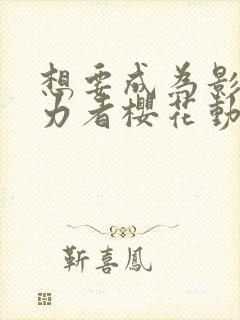 想要成为影
力者樱花動
靳喜鳳